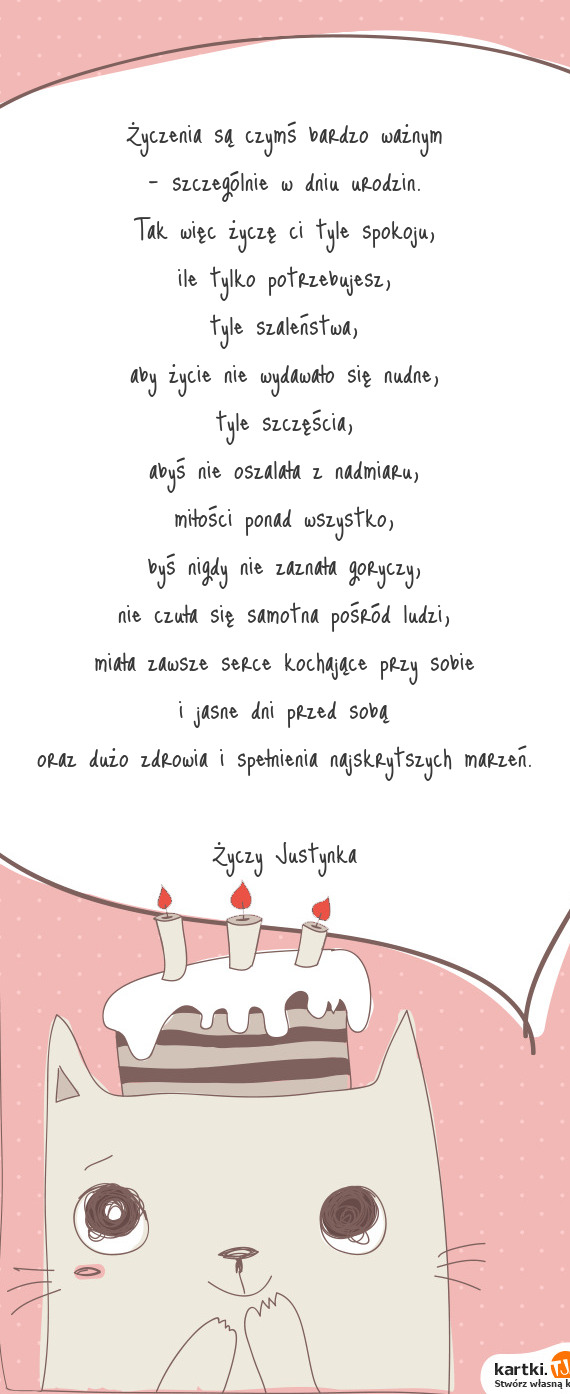 Życzenia są czymś bardzo ważnym
- szczególnie w dniu urodzin.
Tak więc życzę ci tyle spokoju,
ile tylko potrzebujesz,
tyle szaleństwa,
aby życie nie wydawało się nudne,
tyle szczęścia,
abyś nie oszalała z nadmiaru,
miłości ponad wszystko,
byś nigdy nie zaznała goryczy,
nie czuła się samotna pośród ludzi,
miała zawsze serce kochające przy sobie
i jasne dni przed sobą
oraz dużo zdrowia i spełnienia najskrytszych marzeń.
Życzy Justynka
kartki.TJ
Stwórz własną k